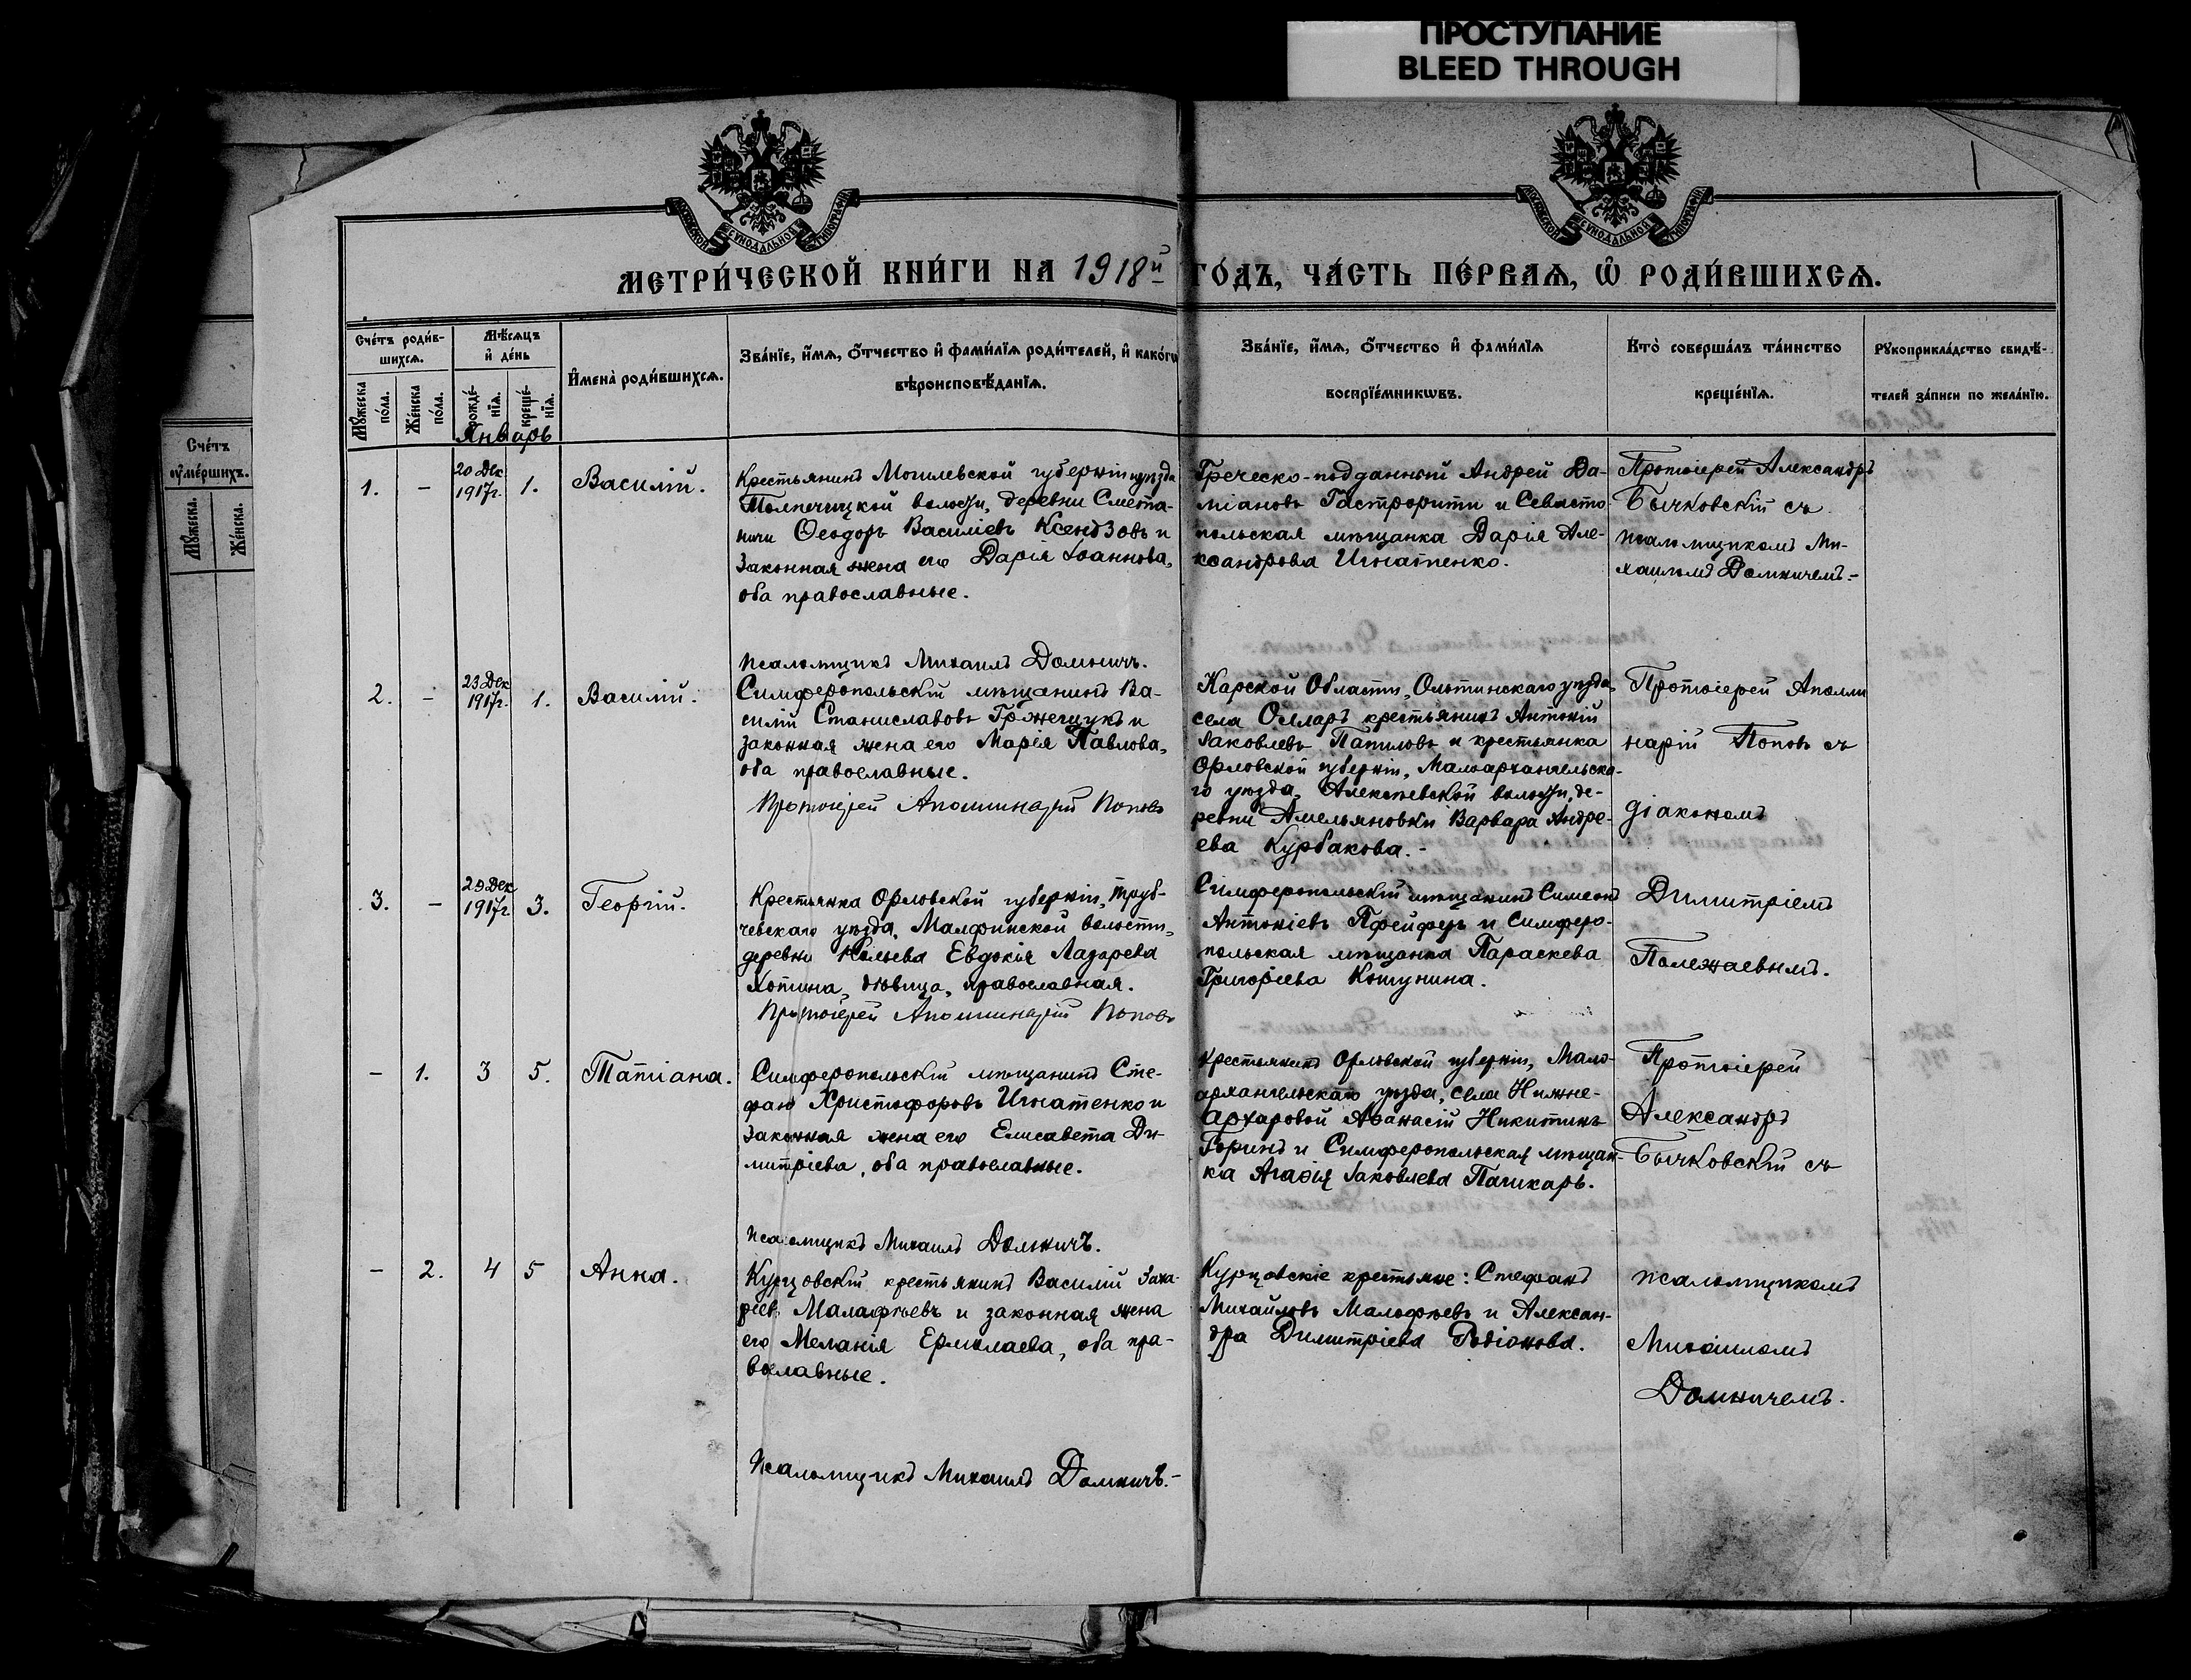 ПРОСТУПАНИЕ
BLEED THROUGH
МЕТРИ́ЧЕСКОЙ КНИ́ГИ НА 1918й ГО́ДЪ, ЧА́СТЬ ПЕ́РВАѦ, Ѡ РОДИ́ВШИХСѦ.
Счéтъ роди́в-
шихсѧ.
Мѣ́сѧцъ
и҆ де́нь
И҆мена̀ роди́вшихсѧ.
Зва́нїе, и҆́мѧ, ѻ҆́тчество и҆ фами́лїѧ роди́телей, и҆ како́гѡ
вѣроисповѣ́данїѧ.
Зва́нїе, и҆́мѧ, ѻ҆́тчество и҆ фами́лїѧ
воспрїе́мникѡвъ.
Кто̀ соверша́лъ та́инство
креще́нїѧ.
Рꙋкоприкла́дство свидѣ́-
телей за́писи по жела́нїю.
Мꙋ́жеска
по́ла.
Же́нска
по́ла.
рожде́-
нїѧ.
креще́-
нїѧ.
Январь
Счéтъ
ᲂу҆ме́ршихъ.
Мꙋ́жеска.
Же́нска.
1. – 20 Дек 1917г. 1. Василій.
Крестьянинъ Могилевской губерніи уѣзда
волости, деревни Смета-
ничи Ѳеодоръ Василіевъ Ксендзовъ и
законная жена его Дарія Іоаннова,
оба православные.
Псаломщикъ Михаилъ Домничъ.
Греческо-подданный Андрей Да-
міановъ и Севасто-
польская мѣщанка Дарія Але-
ксандрова Игнатенко.
Протоіерей Александръ
Бычковскій съ
псаломщикомъ Ми-
хаиломъ Домничемъ.–
2. – 23 Дек 1917г. 1. Василій.
Симферопольскій мѣщанинъ Ва-
силій Станиславовъ и
законная жена его Марія Павлова,
оба православные.
Протоіерей Аполлинарій Поповъ
Карской Области, Ольтинскаго уѣзда,
села крестьянинъ Антоній
Іаковлевъ и крестьянка
Орловской губерніи, Малоархангельска-
го уѣзда, Алексѣевской волости, де-
ревни Амельяновки Варвара Андре-
ева Курбакова.–
Протоіерей Аполли
нарій Поповъ съ
діакономъ
3. – 29 Дек 1917г 3. Георгій.
Крестьянка Орловской губерніи, Труб-
чевскаго уѣзда, Малфинской волости,
деревни Евдокія Лазарева
Хотина, дѣвица, православная.
Протоіерей Аполлинарій Поповъ
Симферопольскій мѣщанинъ Симеонъ
Антоніевъ Пфейферъ и Симферо-
польская мѣщанка Параскева
Григоріева Кошунина.
Димитріемъ
Полежаевымъ.
– 1. 3 5. Татіана.
Симферопольскій мѣщанинъ Сте-
фанъ Христофоровъ Игнатенко и
законная жена его Елисавета Ди-
митріева, оба православные.
Псаломщикъ Михаилъ Домничъ.
Крестьянинъ Орловской губерніи, Мало-
архангельскаго уѣзда, села Нижне-
Архаровой Аѳанасій Никитинъ
Горинъ и Симферопольская мѣщан-
ка Агаѳія Іаковлева Пашкарь.
Протоіерей
Александръ
Бычковскій съ
– 2. 4 5 Анна.
Курцовскій крестьянинъ Василій Заха-
ріевъ Малафѣевъ и законная жена
его Меланія Ермолаева, оба пра-
вославные.
Псаломщикъ Михаилъ Домничъ.–
Курцовскіе крестьяне: Стефанъ
Михайловъ Малофѣевъ и Алексан-
дра Димитріева Родіонова.
псаломщикомъ
Михаиломъ
Домничемъ.